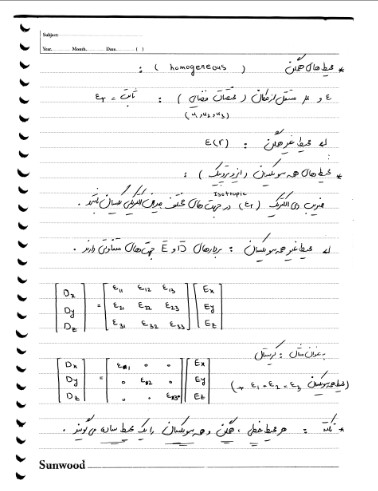 Subject:
Year. Month. Date. ( )
* محیط های همگن (homogeneous) :
ε و μ مستقل از مکان (مختصات فضایی) : ثابت = εr
(u₁, u₂, u₃)
محیط غیر همگن : ε(r)
* محیط های همه سویکسان (ایزوتروپیک) :
Isotropic
ضریب دی الکتریک (εr) در جهت های مختلف میدان الکتریکی یکسان باشد.
محیط غیر همه سو یکسان : بردارهای D و E جهت های متفاوتی دارند.
[Dx Dy Dz] = [ε11 ε12 ε13 ε21 ε22 ε23 ε31 ε32 ε33] [Ex Ey Ez]
به عنوان مثال : کریستال
[Dx Dy Dz] = [ε1 0 0 0 ε2 0 0 0 ε3] [Ex Ey Ez]
(محیط همه سویکسان ε1 = ε2 = ε3
* نکته : هر محیط خطی ، همگن و همه سویکسان را یک محیط ساده می گویند.
Sunwood